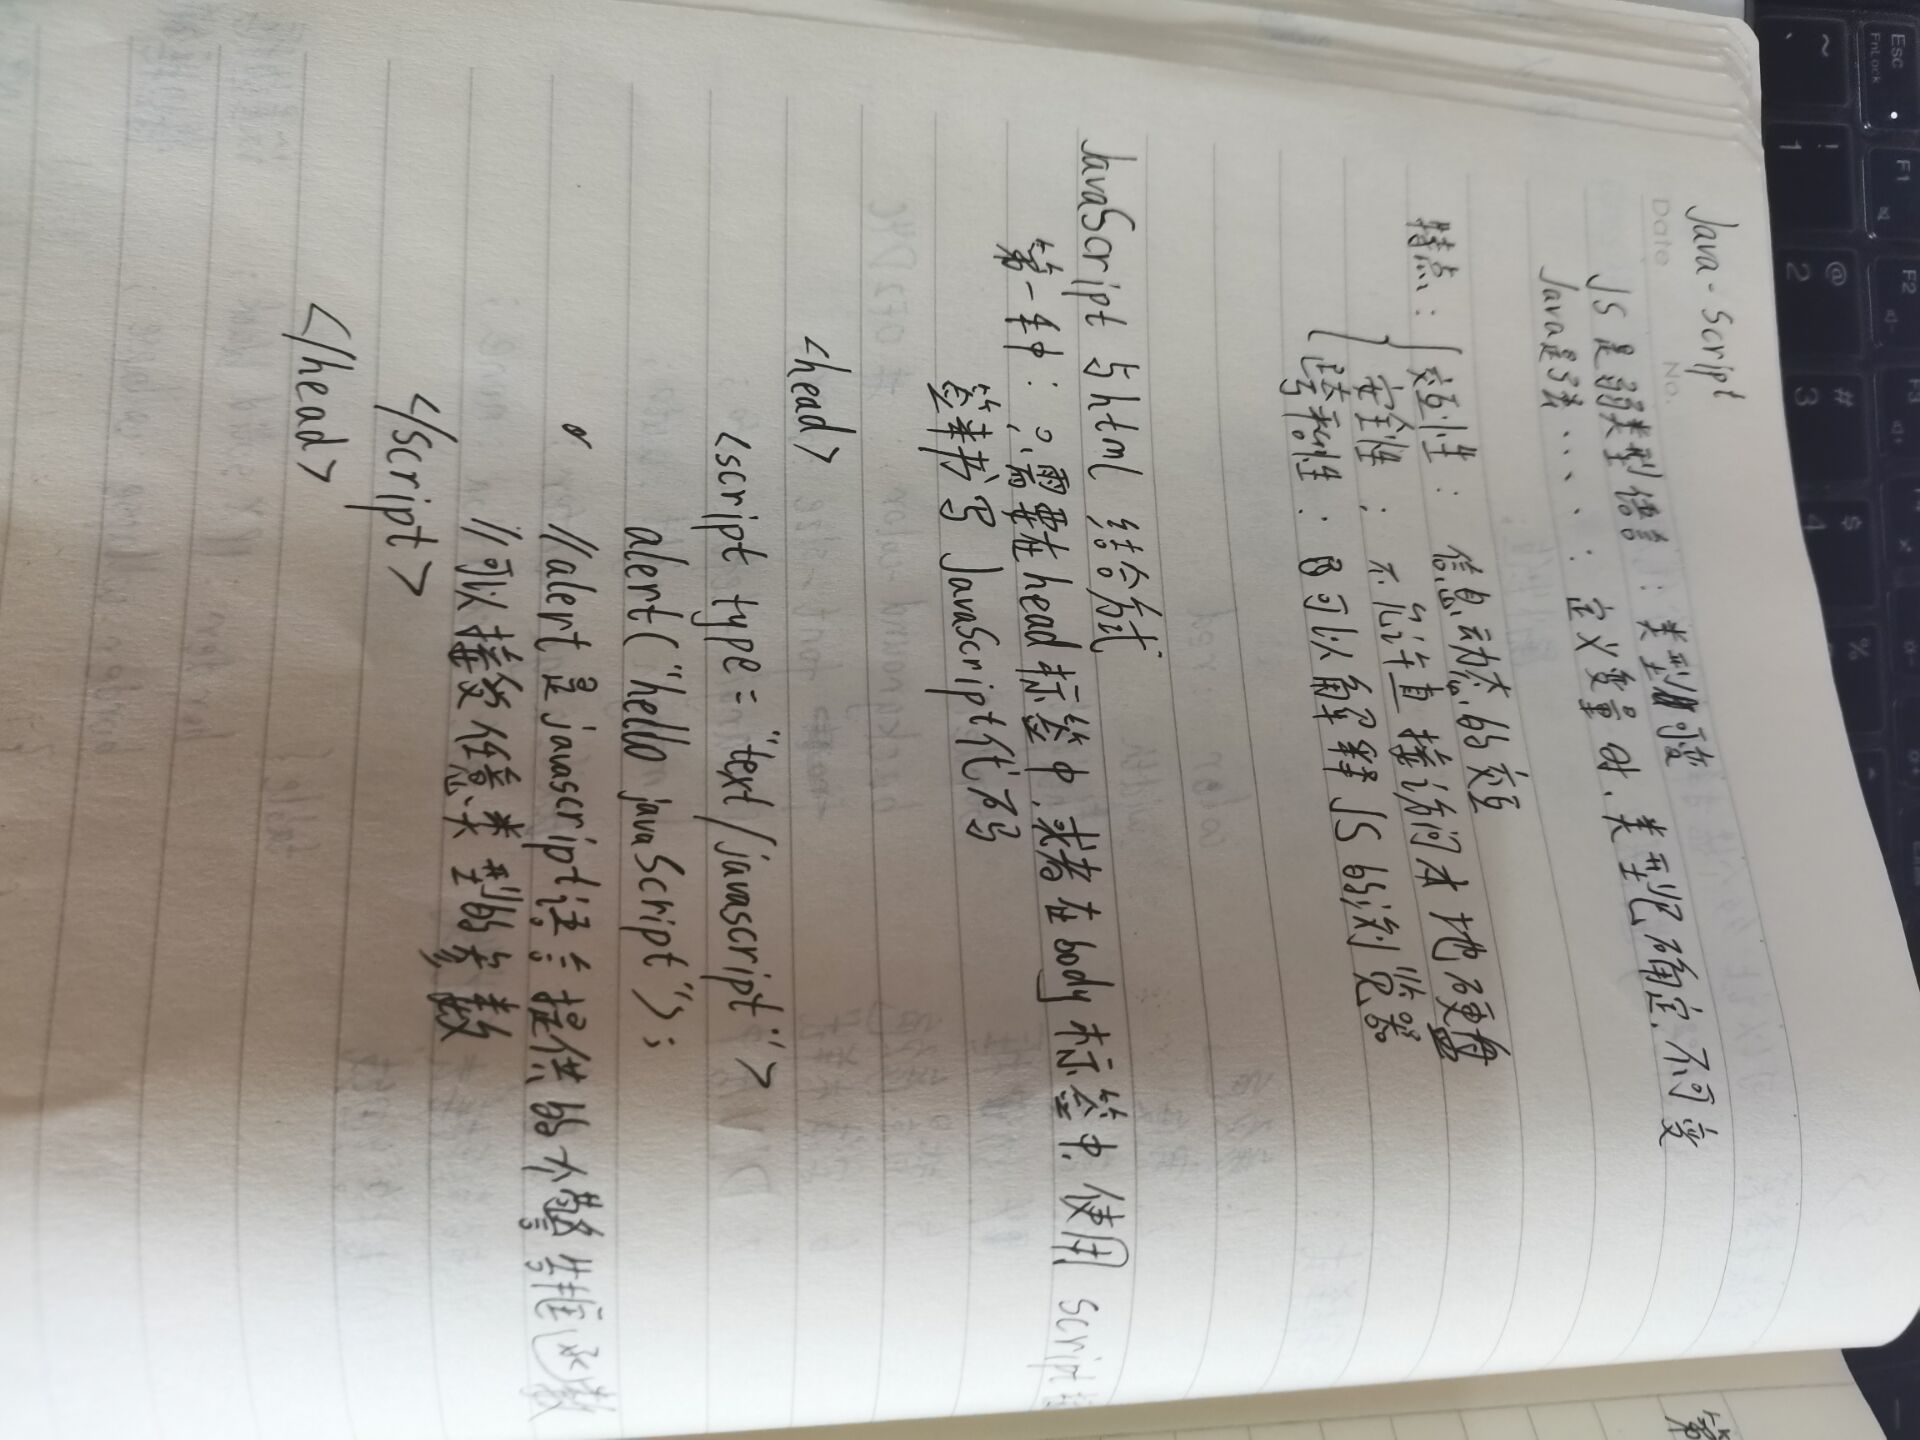 Java-Script
Date No.
JS 是弱类型语言：类型可变
Java是强、、、、：定义变量时，类型已确定，不可变
特点：
交互性：信息动态的交互
安全性：不允许直接访问本地硬盘
跨平台性：可以解释JS的浏览器
JavaScript 与html 结合方式
第一种：需要在head标签中，或者在body标签中，使用script标
签来书写 JavaScript代码
<head>
<script type="text/javascript">
alert("hello javaScript");
//alert是javascript语言提供的个警告框函数
//可以接受任意类型的参数
</script>
</head>
Esc
FnLock
F1
F2
F3
~
`
!
1
@
2
#
3
$
4
%
第